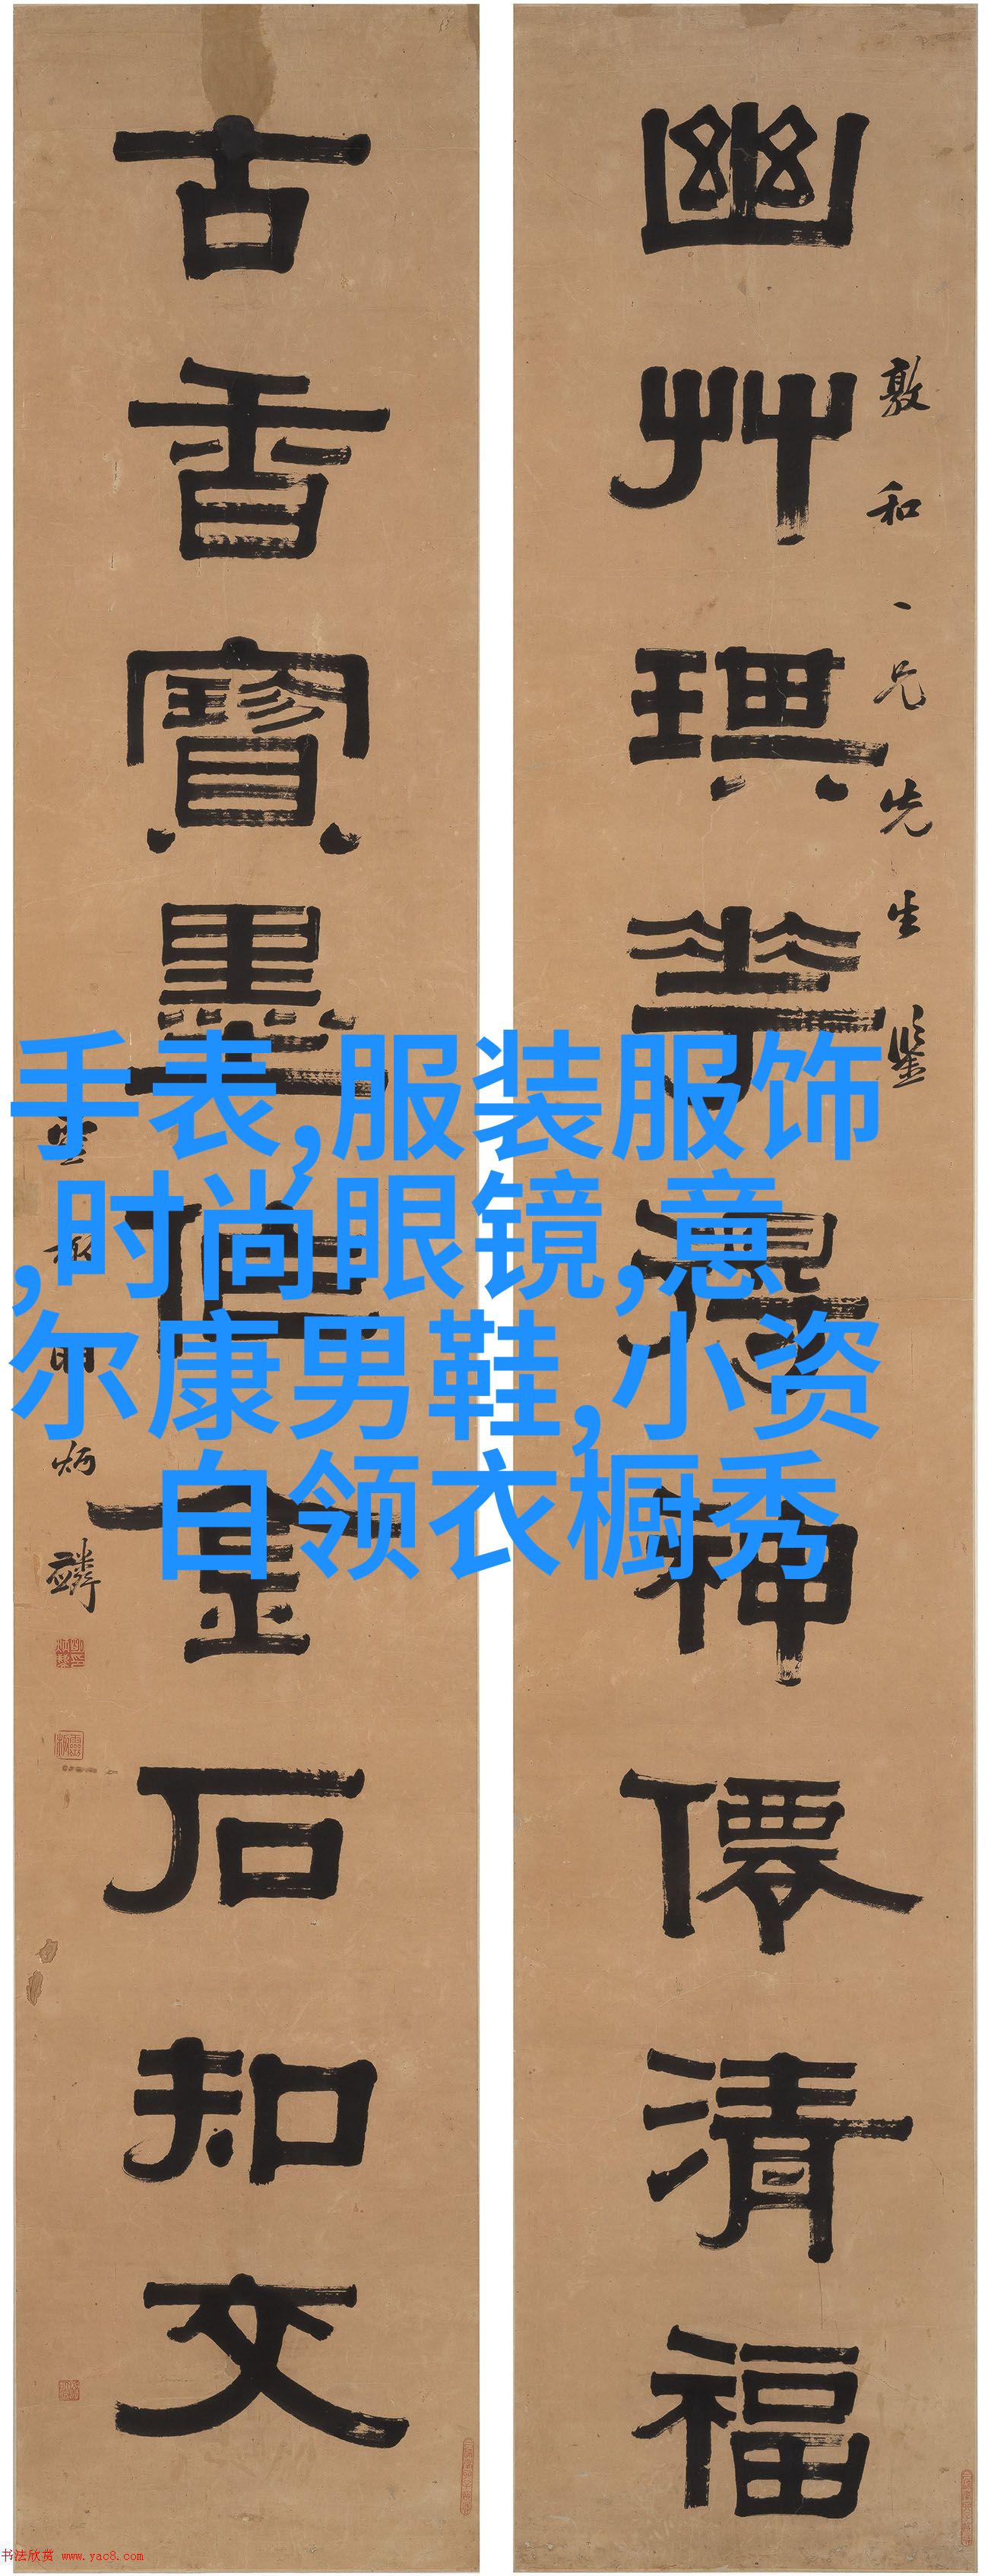 幽艸琪花得神僊清福
敦和一兄先生鉴
古香寶墨伯金石知文
炳麟
手表,服装服饰
,时尚眼镜,意
尔康男鞋,小资
白领衣橱秀
书法欣赏 www.yac8.com